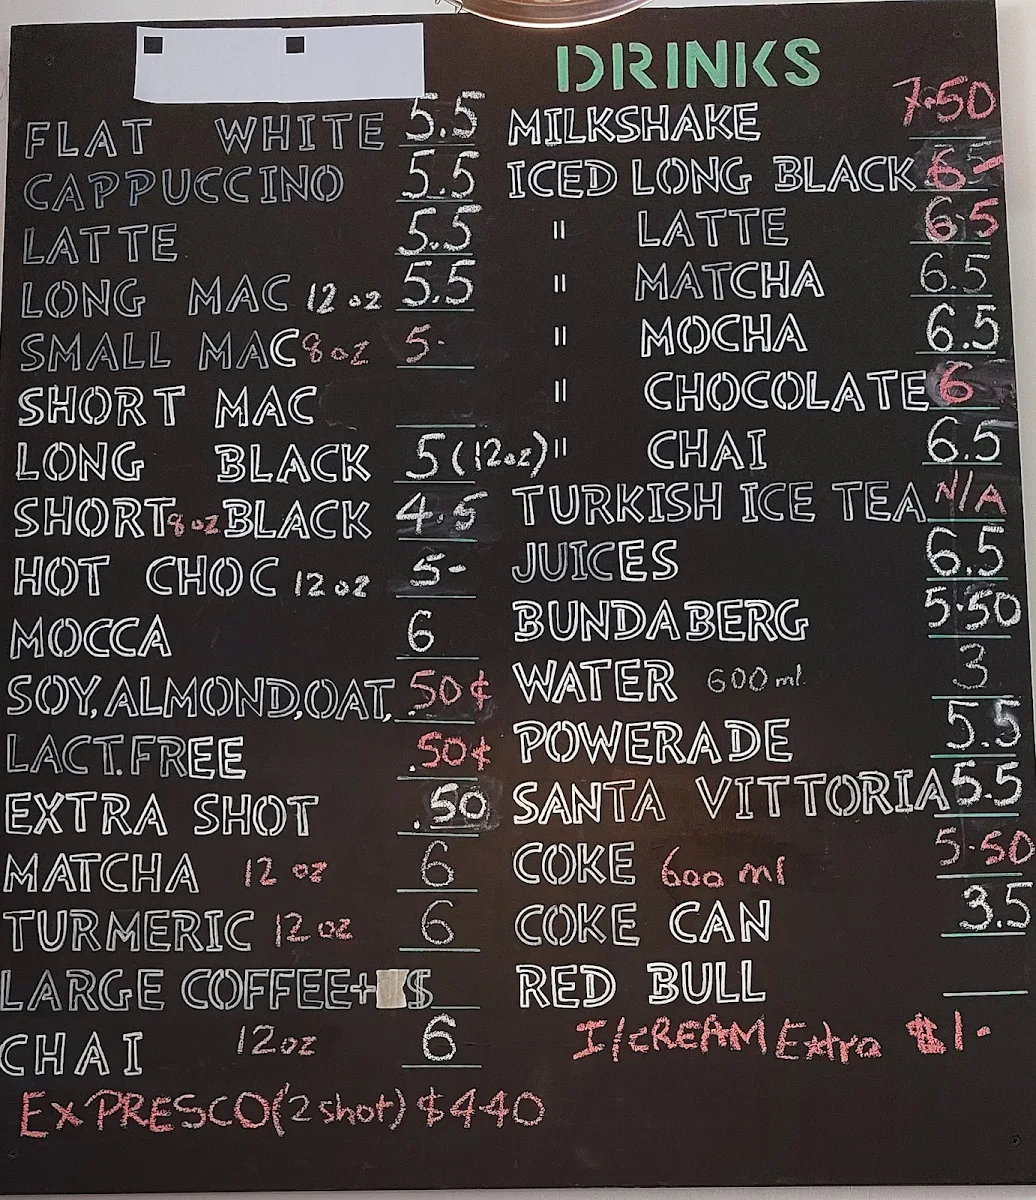 FLAT WHITE 5.5
CAPPUCCINO 5.5
LATTE 5.5
LONG MAC 12 oz 5.5
SMALL MAC 8 oz 5.
SHORT MAC
LONG BLACK 5 (12oz)
SHORT 8 oz BLACK 4.5
HOT CHOC 12 oz 5-
MOCCA 6
SOY, ALMOND, OAT, .50¢
LACT. FREE .50¢
EXTRA SHOT .50
MATCHA 12 oz 6
TURMERIC 12 oz 6
LARGE COFFEE+ $
CHAI 12oz 6
EXPRESCO (2 shot) $440
DRINKS
MILKSHAKE 7.50
ICED LONG BLACK 6-
" LATTE 6.5
" MATCHA 6.5
" MOCHA 6.5
" CHOCOLATE 6
" CHAI 6.5
TURKISH ICE TEA N/A
JUICES 6.5
BUNDABERG 5.50
WATER 600 ml 3
POWERADE 5.5
SANTA VITTORIA 5.5
COKE 600 ml 5.50
COKE CAN 3.5
RED BULL
I/CREAM Extra $1.